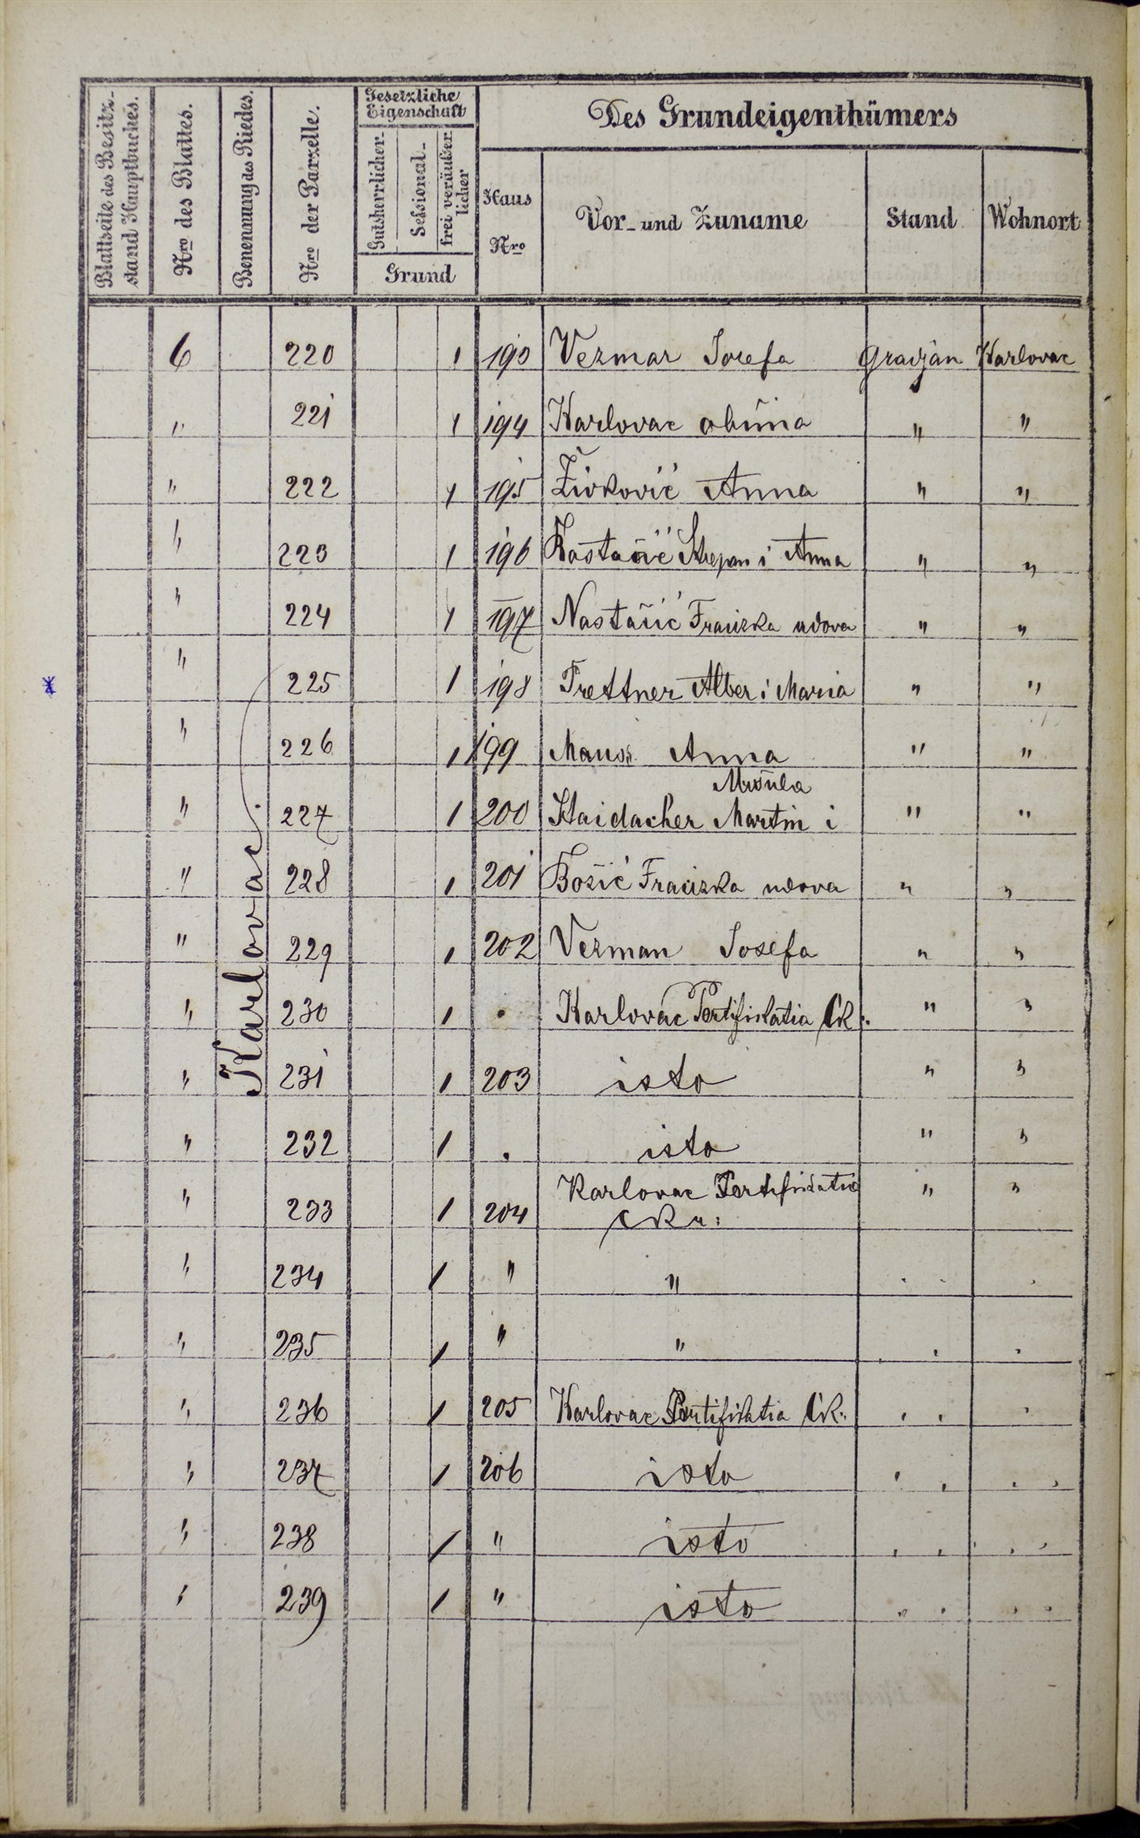 Blattseite des Besitz-
stand Hauptbuches.
Nro des Blattes.
Benennung des Riedes.
Nro der Parzelle.
Gesetzliche
Eigenschaft
Gutsherrlicher-
Sessional-
frei veräußer
licher
Grund
Des Grundeigenthümers
Haus
Nro
Vor- und Zuname
Stand
Wohnort
Karlovac.
6 220 1 193 Vezmar Josefa Gradjan Karlovac
" 221 1 194 Karlovac občina " "
" 222 1 195 Živković Anna " "
" 223 1 196 Stjepan i Anna " "
" 224 1 197 Nastačić Franizka udova " "
" 225 1 198 Trettner Alber i Maria " "
" 226 1 199 Anna " "
Mršula
" 227 1 200 Haidacher Martin i " "
" 228 1 201 Božić Franizka udova " "
" 229 1 202 Vezman Josefa " "
" 230 1 . Karlovac Fortifikatia Ck: " "
" 231 1 203 isto " "
" 232 1 . isto " "
" 233 1 204 Karlovac Fortifikatia " "
" 234 1 " "
" 235 1 " "
" 236 1 205 Karlovac Fortifikatia Ck: " "
" 237 1 206 isto " "
" 238 1 " isto " "
" 239 1 " isto " "